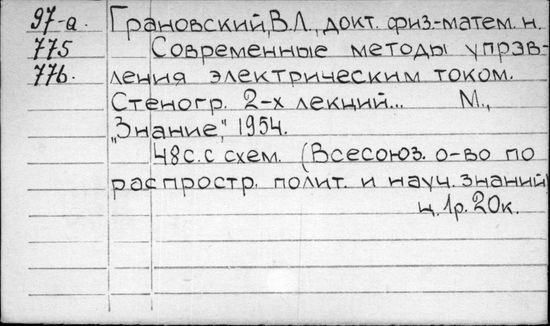 97-а. Грановский, В.Л., докт. физ-матем. н.
775 Современные методы управ-
776. ления электрическим током.
Стеногр. 2-х лекций... М.,
"Знание", 1954.
48с. с схем. (Всесоюз. о-во по
распростр. полит. и науч. знаний)
ц. 1р. 20к.